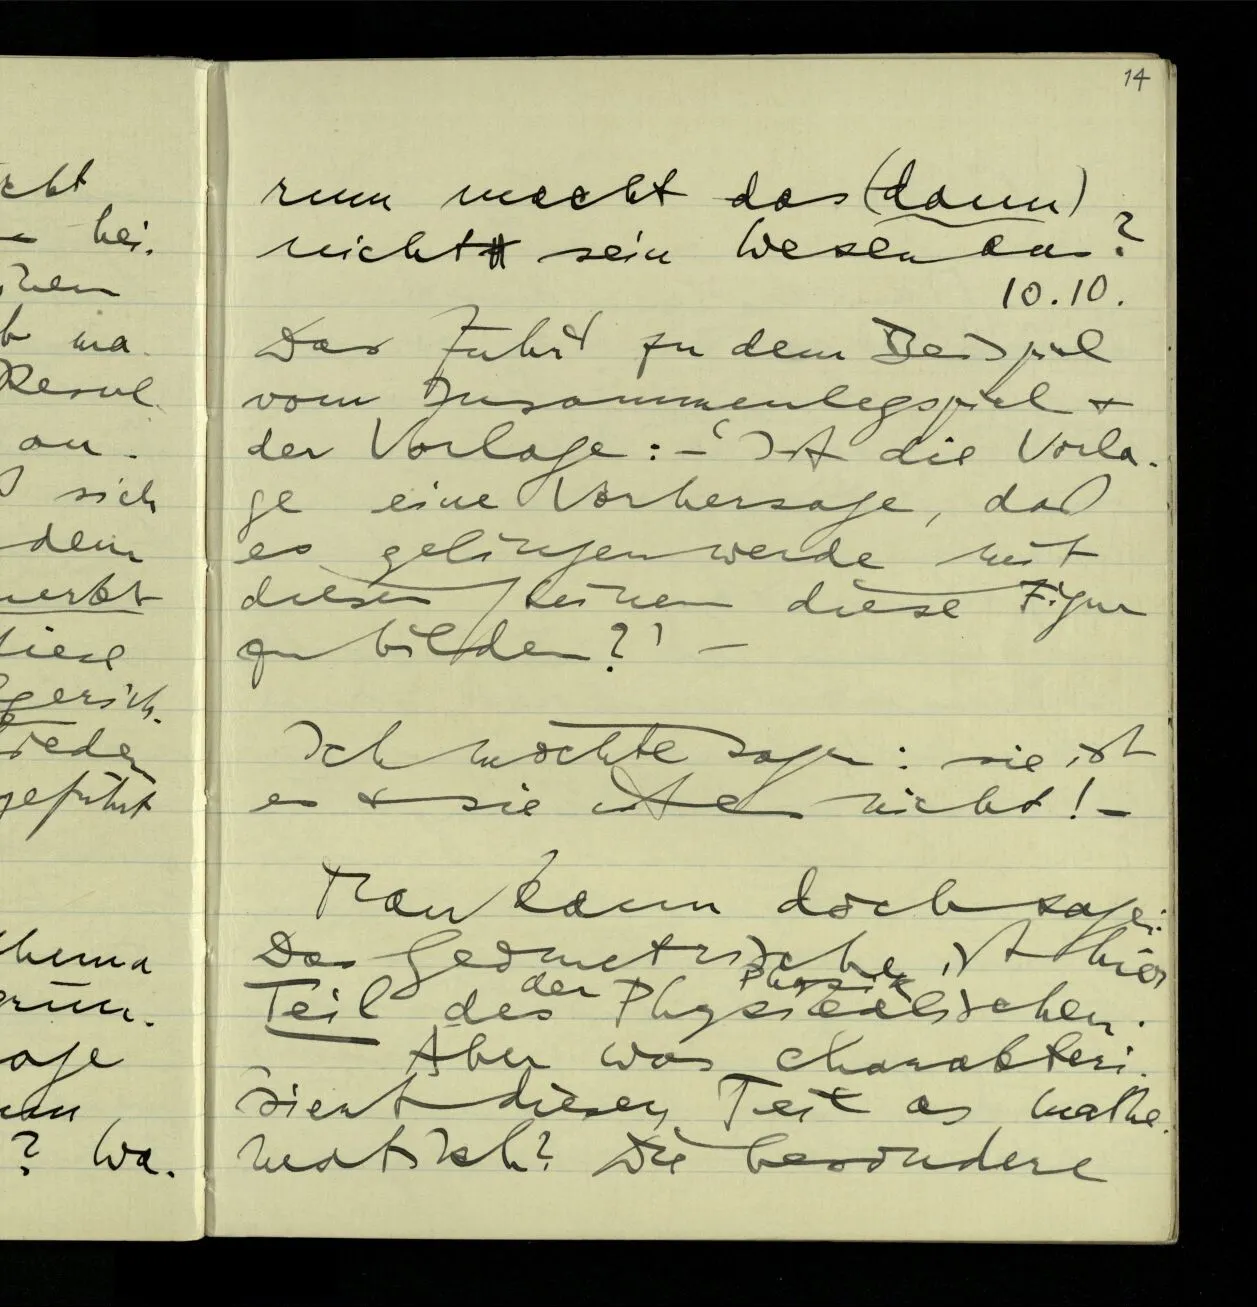 14
rum macht das (dann)
nicht sein Wesen aus?
10.10.
Das führt zu dem Beispiel
vom Zusammenlegspiel +
der Vorlage: – ‘Ist die Vorla-
ge eine Vorhersage, daß
es gelingen werde mit
diesen Steinen diese Figur
zu bilden?’ –
Ich möchte sagen: sie ist
es + sie ist es nicht! –
Man kann doch sagen:
Das Geometrische ist hier
der Physik
Teil des Physikalischen.
Aber was charakteri-
siert diesen Teil als mathe-
matisch? Die besondere
ckt
– bei.
ma-
Resul-
an-
sich
dem
merkt
diese
wieder
geführt
thema
? Wa-